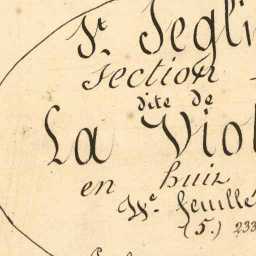 St. Segli
Section
dite de
La Viol
en huit
Ive. feuille
(5.) 233